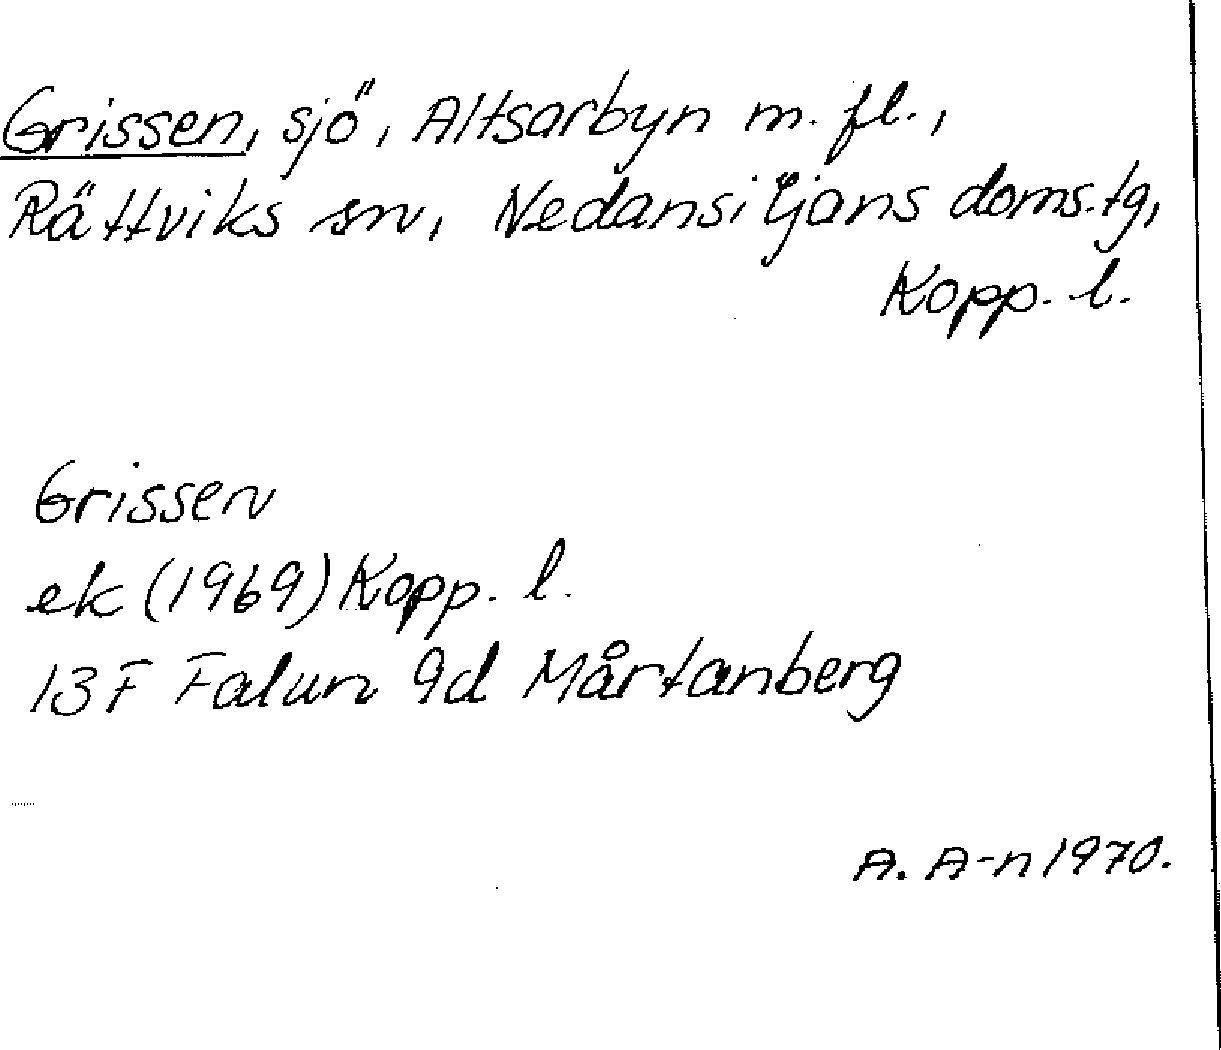 Grissen, sjö, Altsarbyn m. fl.,
Rättviks sn, Nedansiljans doms.tg,
Kopp. l.
Grissen
ek (1969) Kopp. l.
13F Falun 9d Mårtanberg
A. A-n 1970.